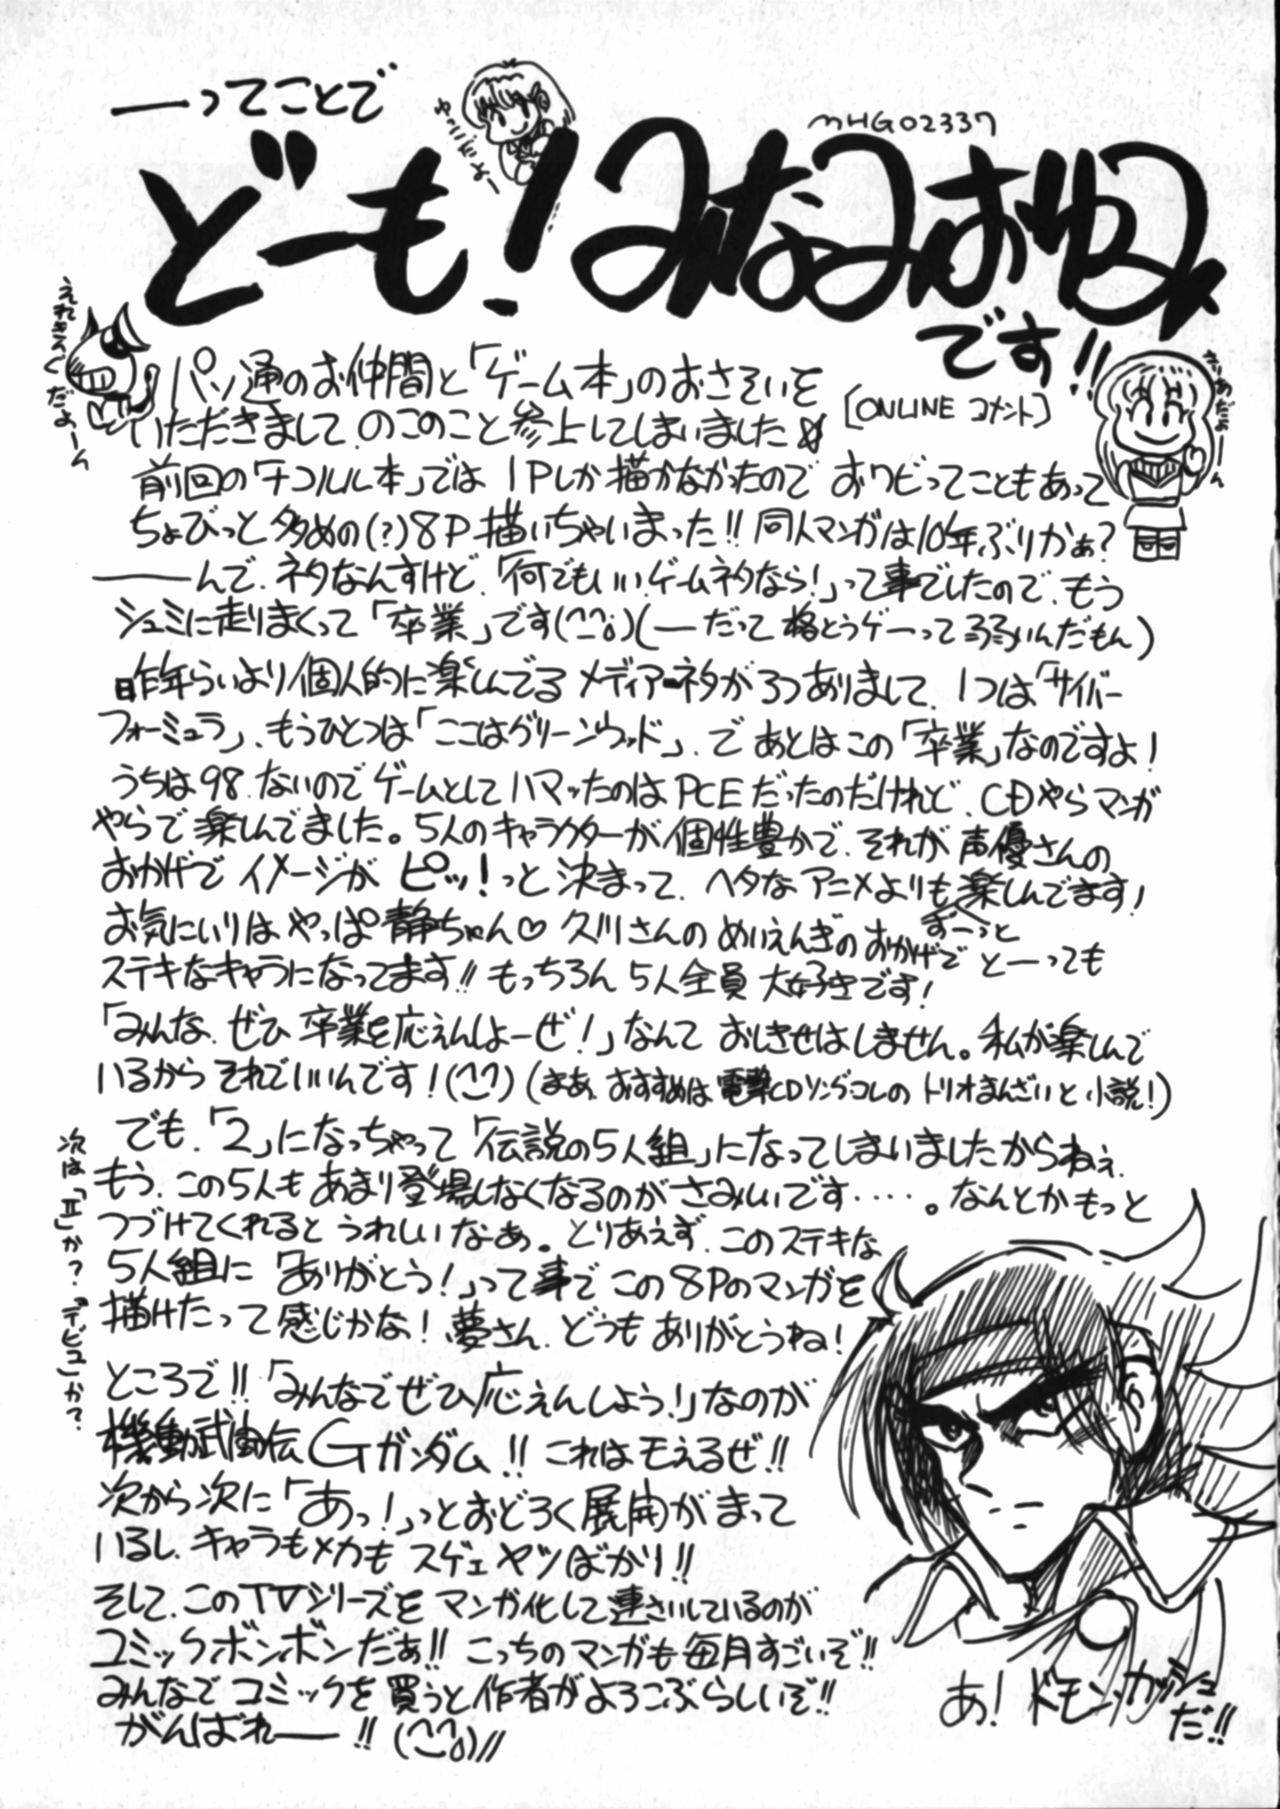 ――ってことで
ゆっこだよー
MHG02337
どーも!みなみおゆみ
です!!
えれきんぐだよーん
きりあだよーん
[ONLINE コメント]
パソ通のお仲間と「ゲーム本」のおさそいを
いただきまして、のこのこと参上してしまいました
前回の「ナコルル本」では 1Pしか描かなかったので おワビってこともあって
ちょびっと多めの(?)8P描いちゃいまった!!同人マンガは10年ぶりかぁ?
――んで、ネタなんすけど、「何でもいいゲームネタなら!」って事でしたので、もう
シュミに走りまくって「卒業」です(^^;)(―だって格とうゲーって弱いんだもん)
昨年らいより個人的に楽しんでるメディアネタが3つありまして、1つは「サイバー
フォーミュラ」、もうひとつは「ここはグリーンウッド」、で あとはこの「卒業」なのですよ!
うちは98、ないのでゲームとしてハマったのはPCEだったのだけれど、CDやらマンガ
やらで楽しんでました。5人のキャラクターが個性豊かで、それが声優さんの
おかげでイメージがピッ!っと決まって、ヘタなアニメよりもずーっと楽しんでます!
お気にいりはやっぱ静ちゃん♡久川さんのめいえんぎのおかげで とーっても
ステキなキャラになってます!!もっちろん5人全員大好きです!
「みんな、ぜひ卒業を応えんしよーぜ!」なんて おしきせはしません。私が楽しんで
いるから それでいいんです!(^^)(まあ、おすすめは電撃CDソングコレのトリオまんざいと小説!)
でも、「2」になっちゃって「伝説の5人組」になってしまいましたからねぇ、
もう、この5人もあまり登場しなくなるのがさみしいです・・・・。なんとかもっと
つづけてくれるとうれしいなあ。とりあえず、このステキな
5人組に「ありがとう!」って事でこの8Pのマンガを
描けたって感じかな!夢さん、どうもありがとうね!
次は「II」か?『デビュ』か?
ところで!!「みんなでぜひ応えんしよう!」なのが
機動武闘伝Gガンダム!!これはモえるぜ!!
次から次に「あっ!」っとおどろく展開がまって
いるし、キャラもメカもスゲェヤツばかり!!
そして、このTVシリーズをマンガ化して連さいしているのが
コミックボンボンだぁ!!こっちのマンガも毎月すごいぞ!!
みんなでコミックを買うと作者がよろこぶらしいぞ!!
がんばれ――!!(^^;)//
あ!ドモン・カッシュ
だ!!